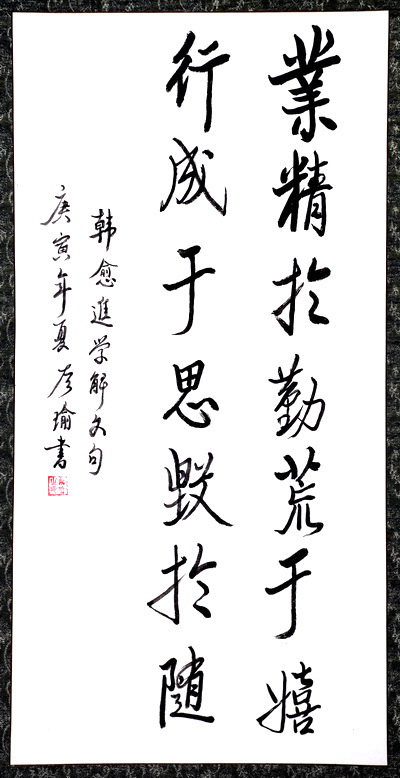 業精於勤荒于嬉
行成于思毀於随
韩愈進学解文句
庚寅年夏彦瑜書